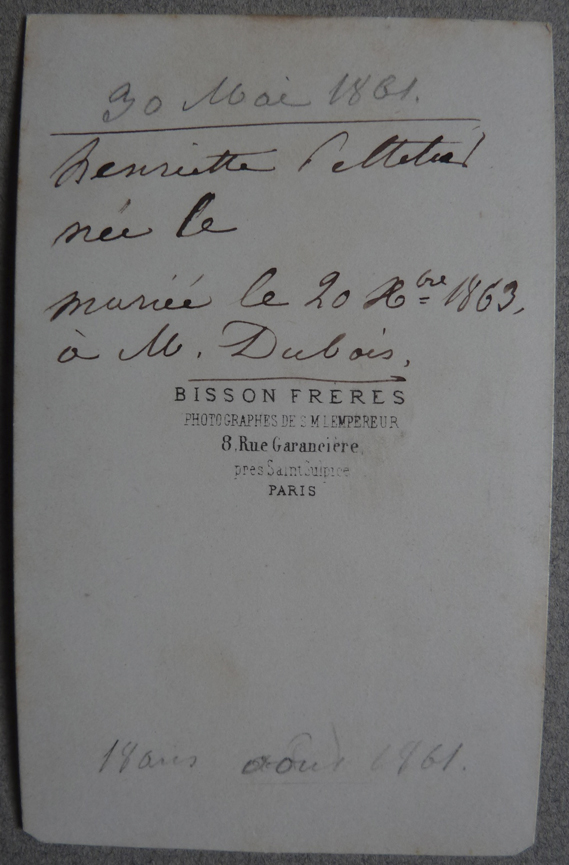 30 Mai 1861.
henriette Pelletier
née le
mariée le 20 Xbre 1863,
à M. Dubois,
BISSON FRERES
PHOTOGRAPHES DE S M L'EMPEREUR
8, Rue Garancière,
près Saint Sulpice
PARIS
18 ans août 1861.